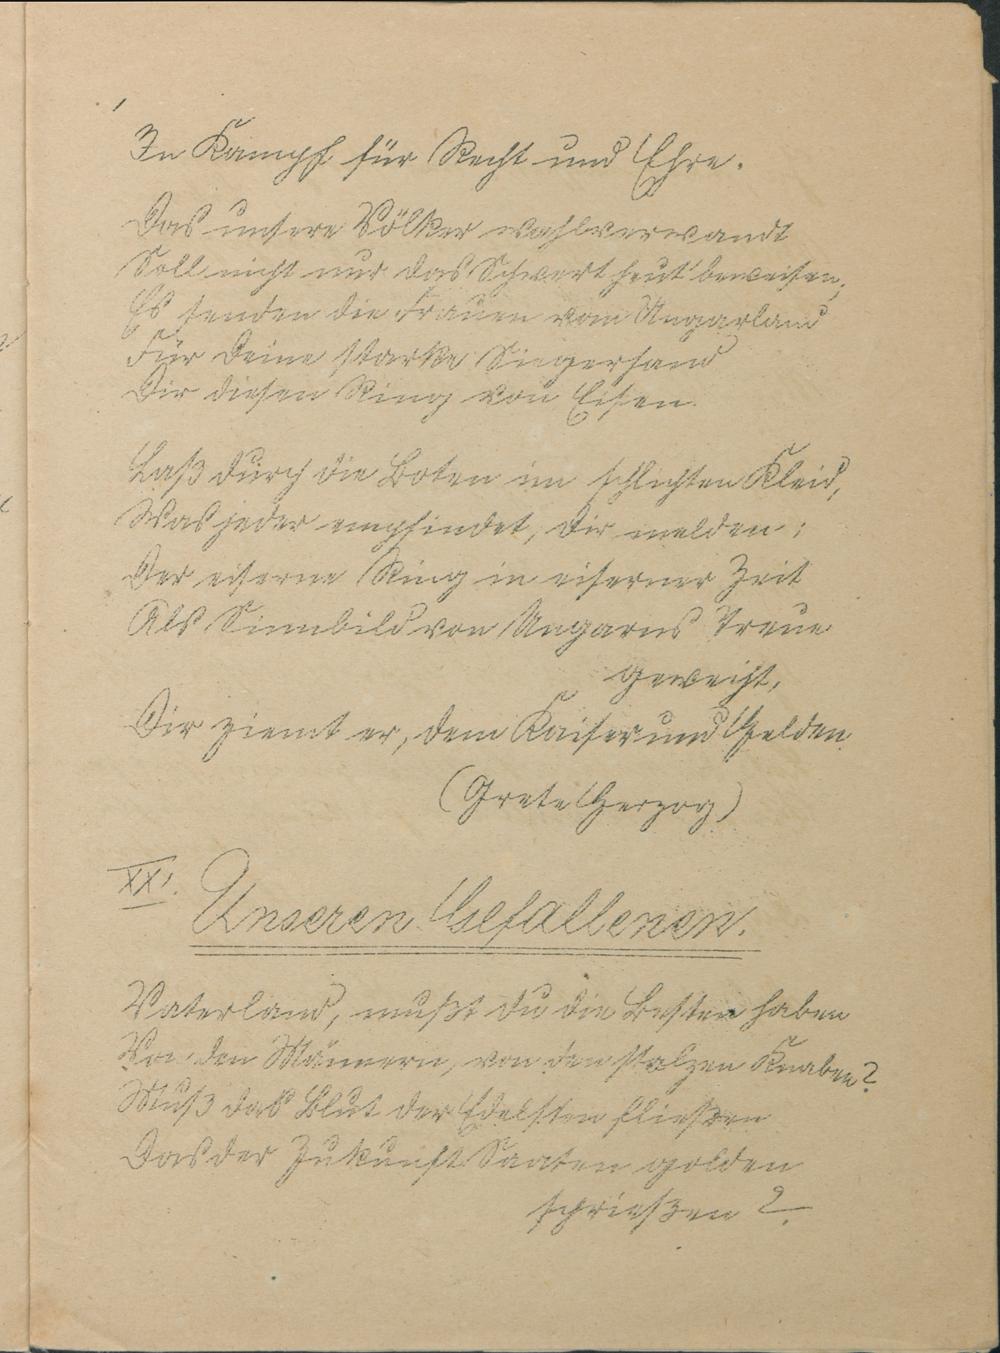 In Kampf für Recht und Ehre.
Das unsere Völker wahlverwandt
Soll nicht nur das Schwert heut' beweisen,
Es senden die Frauen vom Ungarland
Für Deine starke Siegerhand
Dir diesen Ring von Eisen.
Laß durch die Boten im schlichten Kleid,
Was jeder empfindet, Dir melden:
Der eiserne Ring in eiserner Zeit
Als Sinnbild von Ungarns Treue
geweiht,
Dir ziemt er, dem Kaiser und Helden
(Grete Herzog)
XX.
Unseren Gefallenen.
Vaterland, mußt du die Besten haben
Von den Männern, von den stolzen Knaben?
Muß das Blut der Edelsten fließen
Das der Zukunft Saaten golden
schießen?